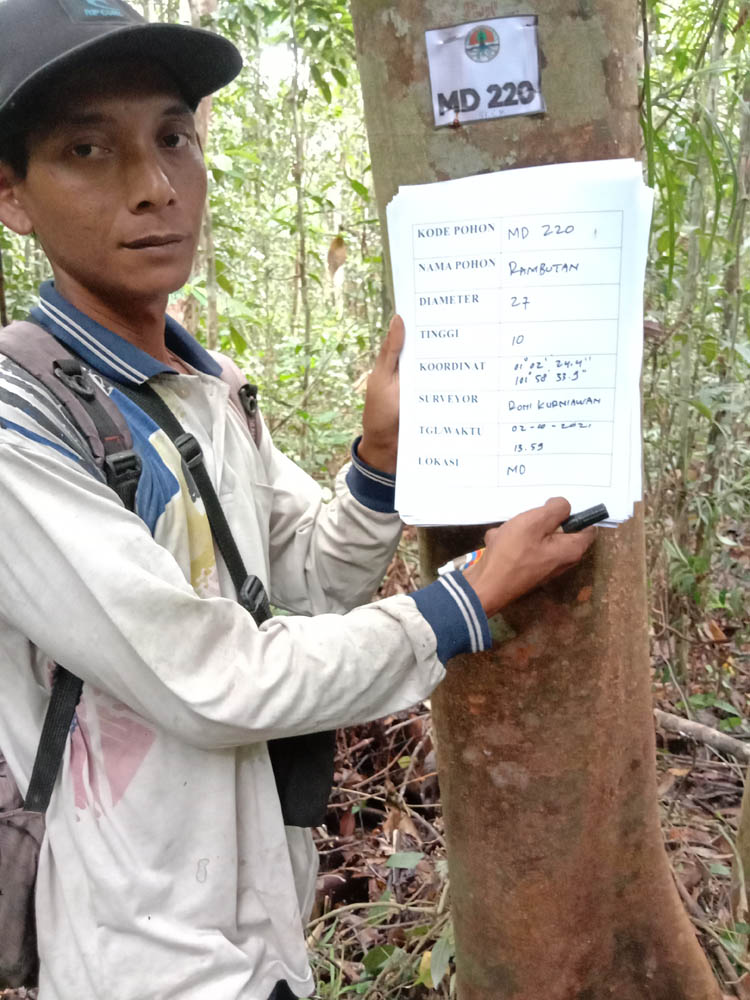 RIP CURL
MD 220
KODE POHON MD 220
NAMA POHON RAMBUTAN
DIAMETER 27
TINGGI 10
KOORDINAT 01° 02' 24.4"
101° 58' 53.9"
SURVEYOR RONI KURNIAWAN
TGL/WAKTU 02-10-2021
13.59
LOKASI MD